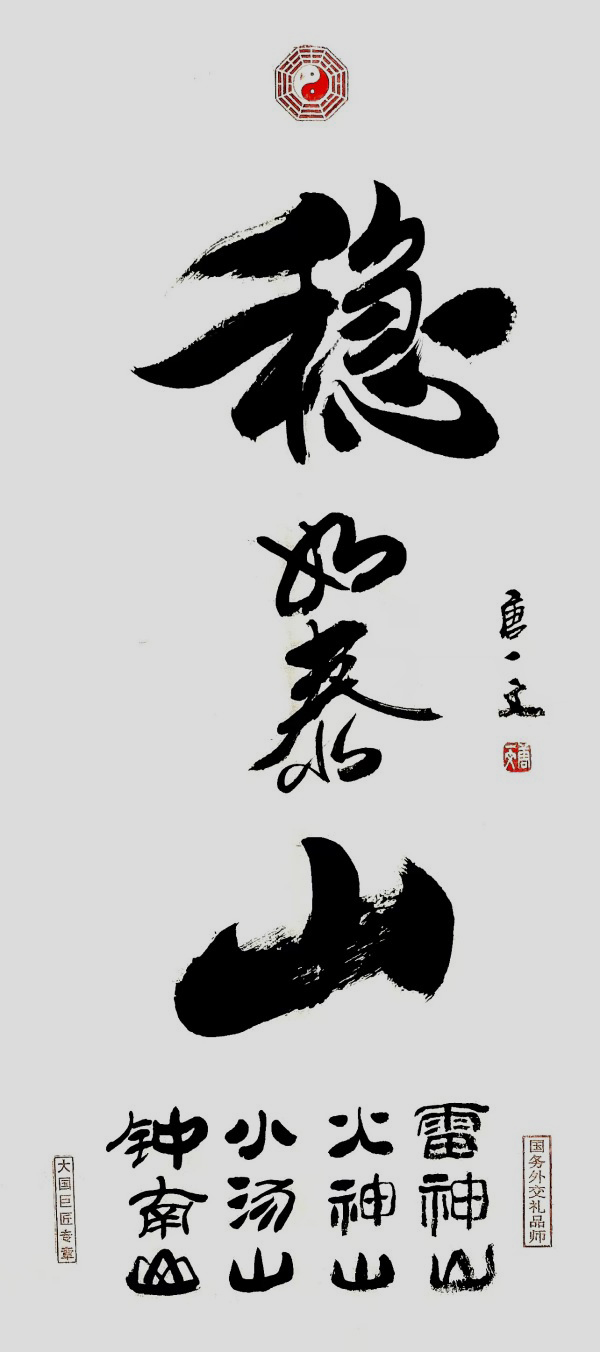 稳如泰山
唐一文
雷神山
火神山
小汤山
钟南山
国务外交礼品师
大国巨匠专章